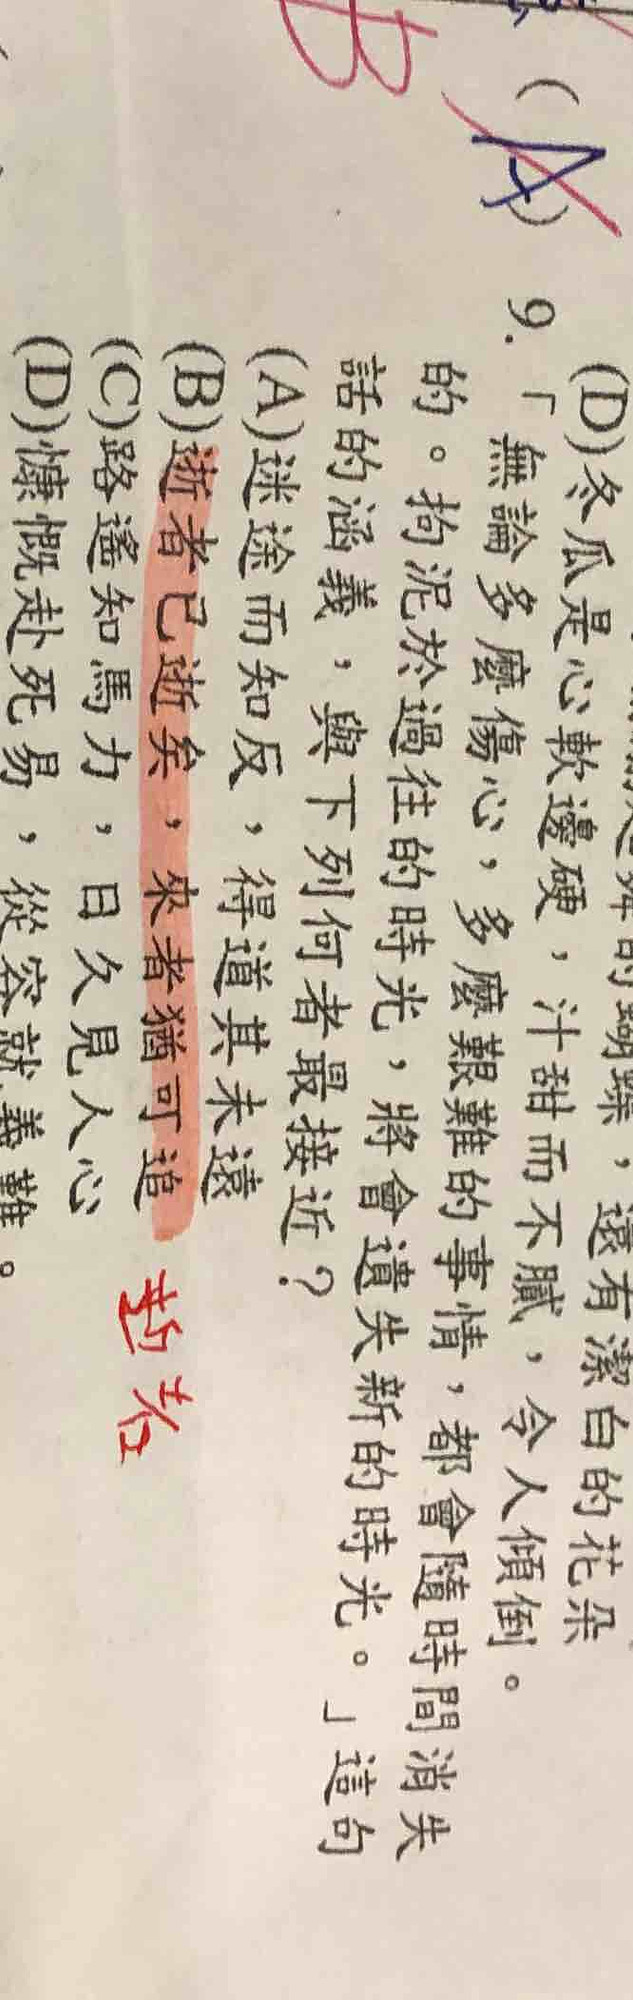 還有潔白的花朵
(D)冬瓜是心軟邊硬，汁甜而不膩，令人傾倒。
(A) 9.「無論多麼傷心，多麼艱難的事情，都會隨時間消失
的。拘泥於過往的時光，將會遺失新的時光。」這句
話的涵義，與下列何者最接近？
(A)迷途而知反，得道其未遠
(B)逝者已逝矣，來者猶可追
(C)路遙知馬力，日久見人心
(D)慷慨赴死易，從容就義難。
B